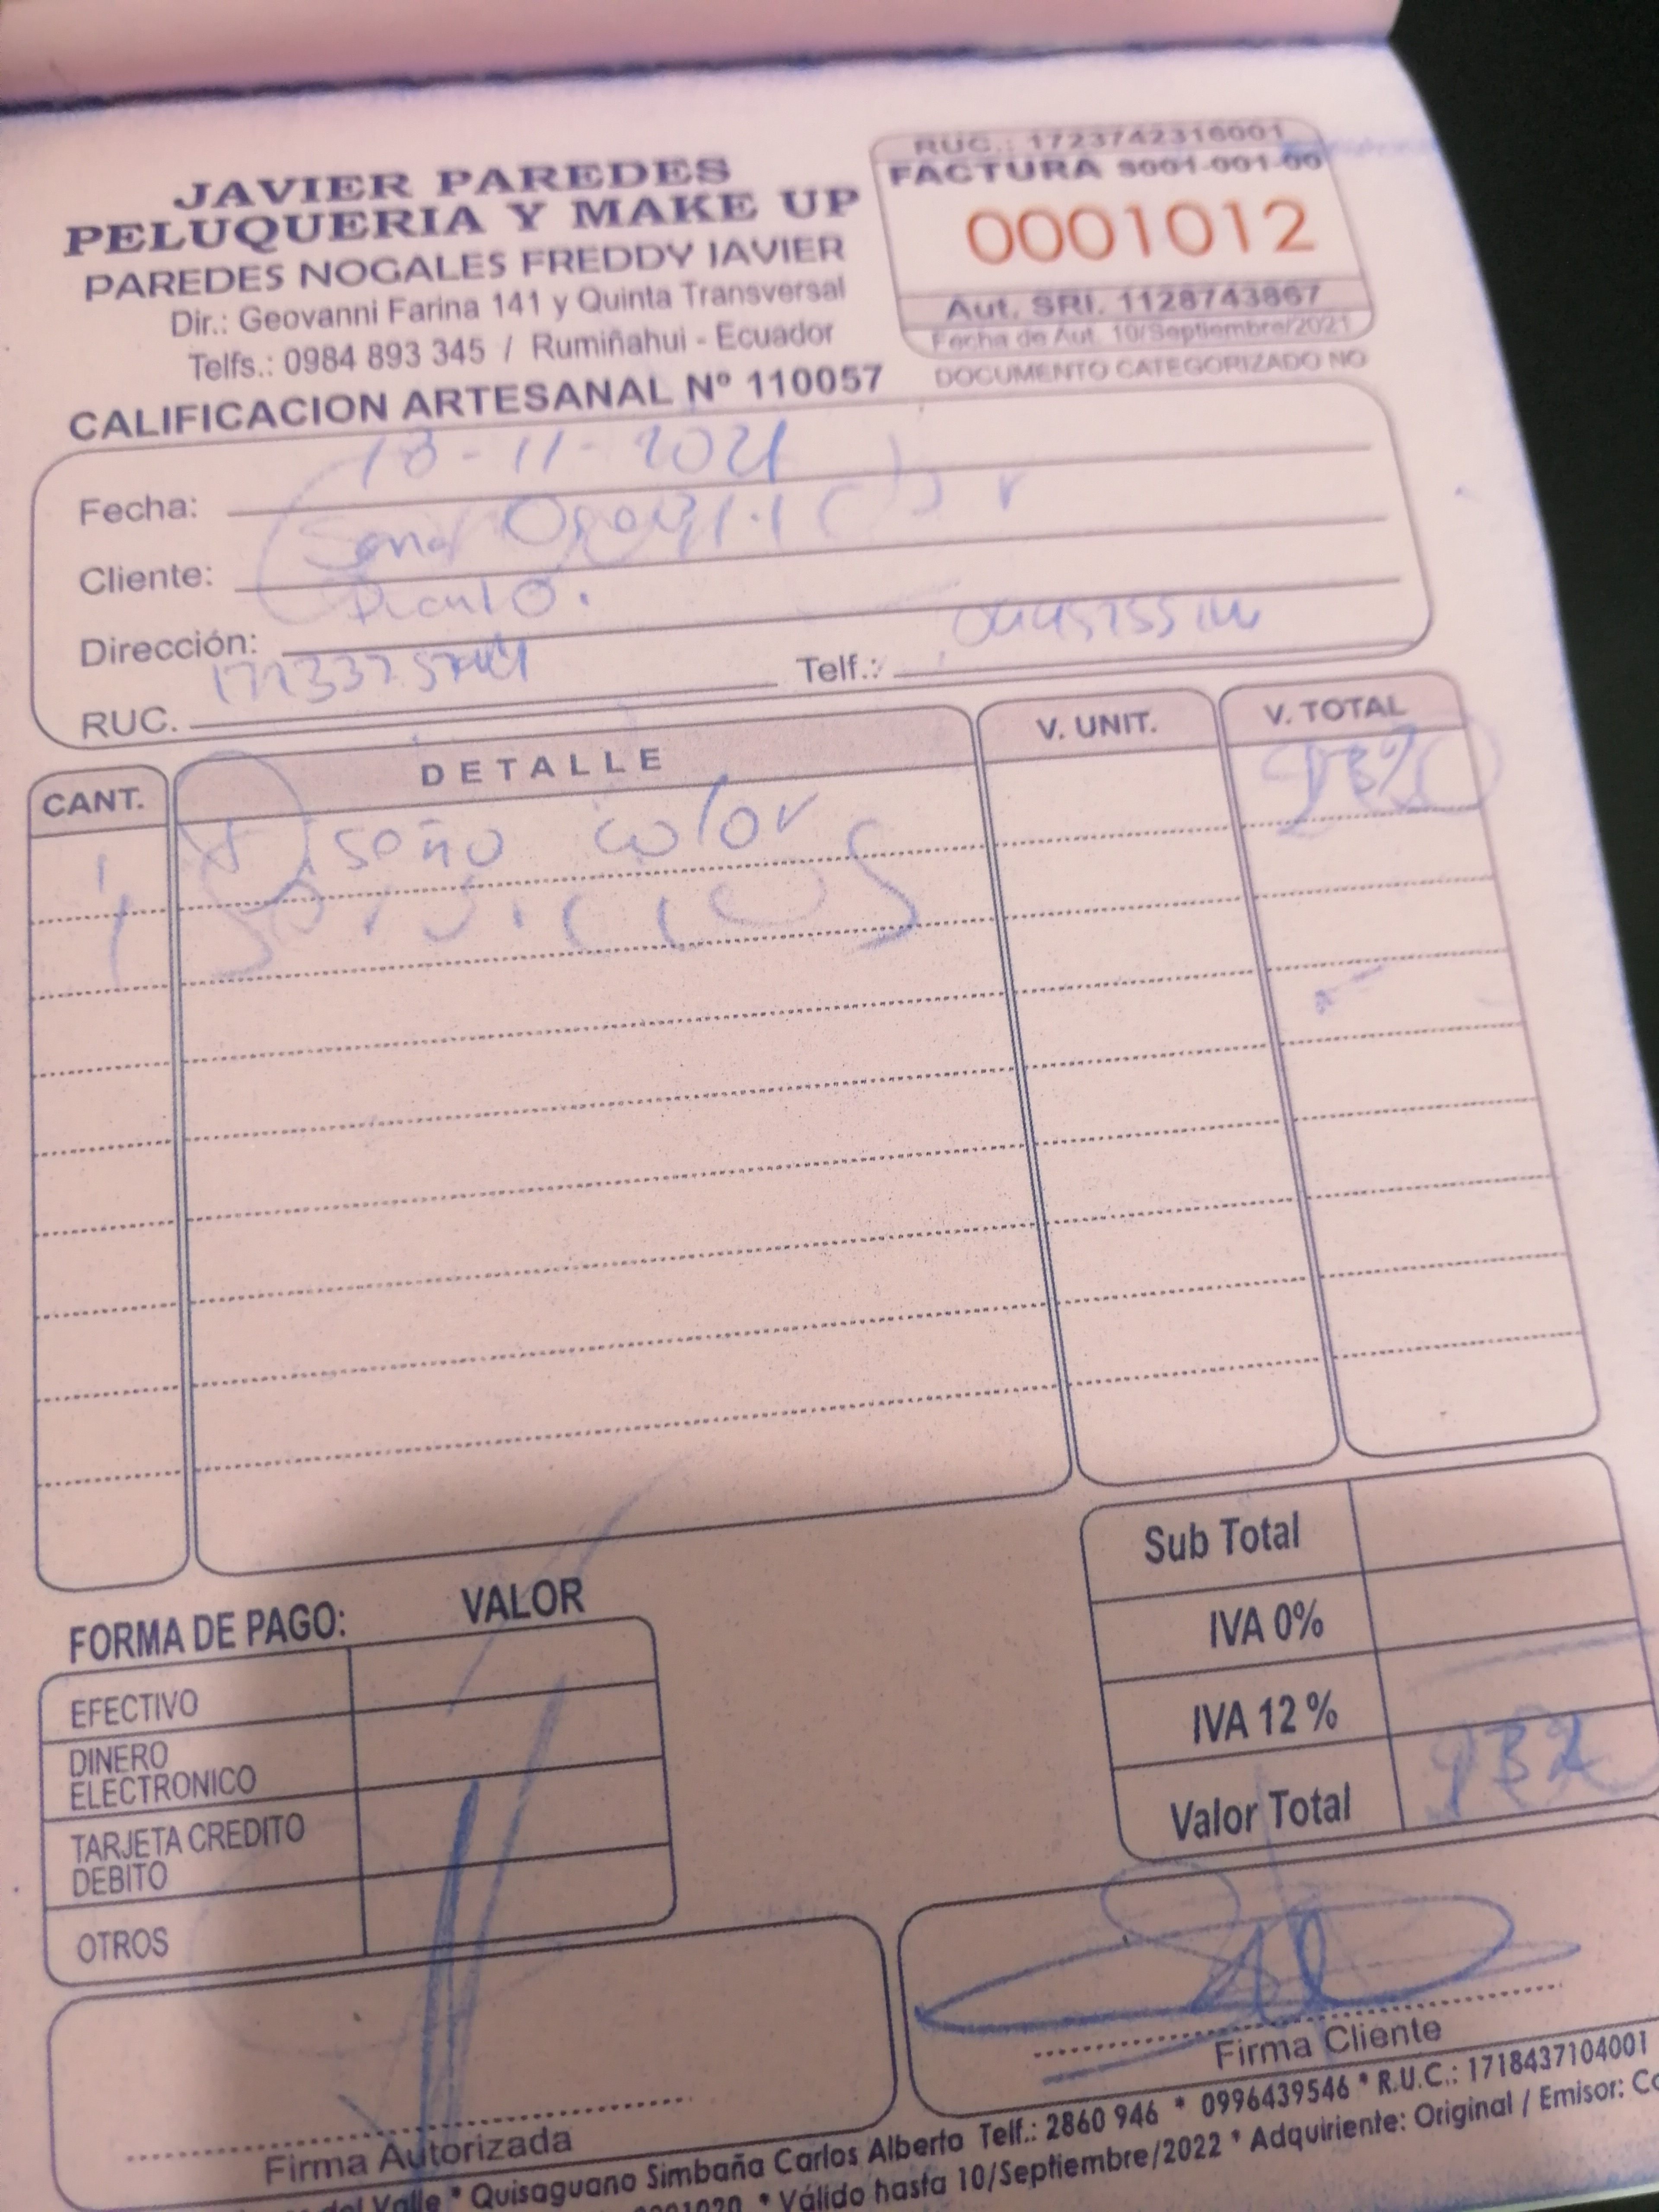 JAVIER PAREDES
PELUQUERIA Y MAKE UP
PAREDES NOGALES FREDDY JAVIER
Dir.: Geovanni Farina 141 y Quinta Transversal
Telfs.: 0984 893 345 / Rumiñahui - Ecuador
CALIFICACION ARTESANAL Nº 110057
RUC.: 1723742316001
FACTURA S001-001-00
0001012
Aut. SRI. 1128743867
Fecha de Aut. 10/Septiembre/2021
DOCUMENTO CATEGORIZADO NO
Fecha: 18-11-2021
Cliente:
Dirección:
RUC.
Telf.:
CANT. DETALLE V. UNIT. V. TOTAL
1 Diseño color
1 Servicios
FORMA DE PAGO: VALOR
EFECTIVO
DINERO ELECTRONICO
TARJETA CREDITO DEBITO
OTROS
Sub Total
IVA 0%
IVA 12 %
Valor Total
Firma Autorizada
Firma Cliente
del Valle * Quisaguano Simbaña Carlos Alberto Telf.: 2860 946 * 0996439546 * R.U.C.: 1718437104001
* Válido hasta 10/Septiembre/2022 * Adquiriente: Original / Emisor: